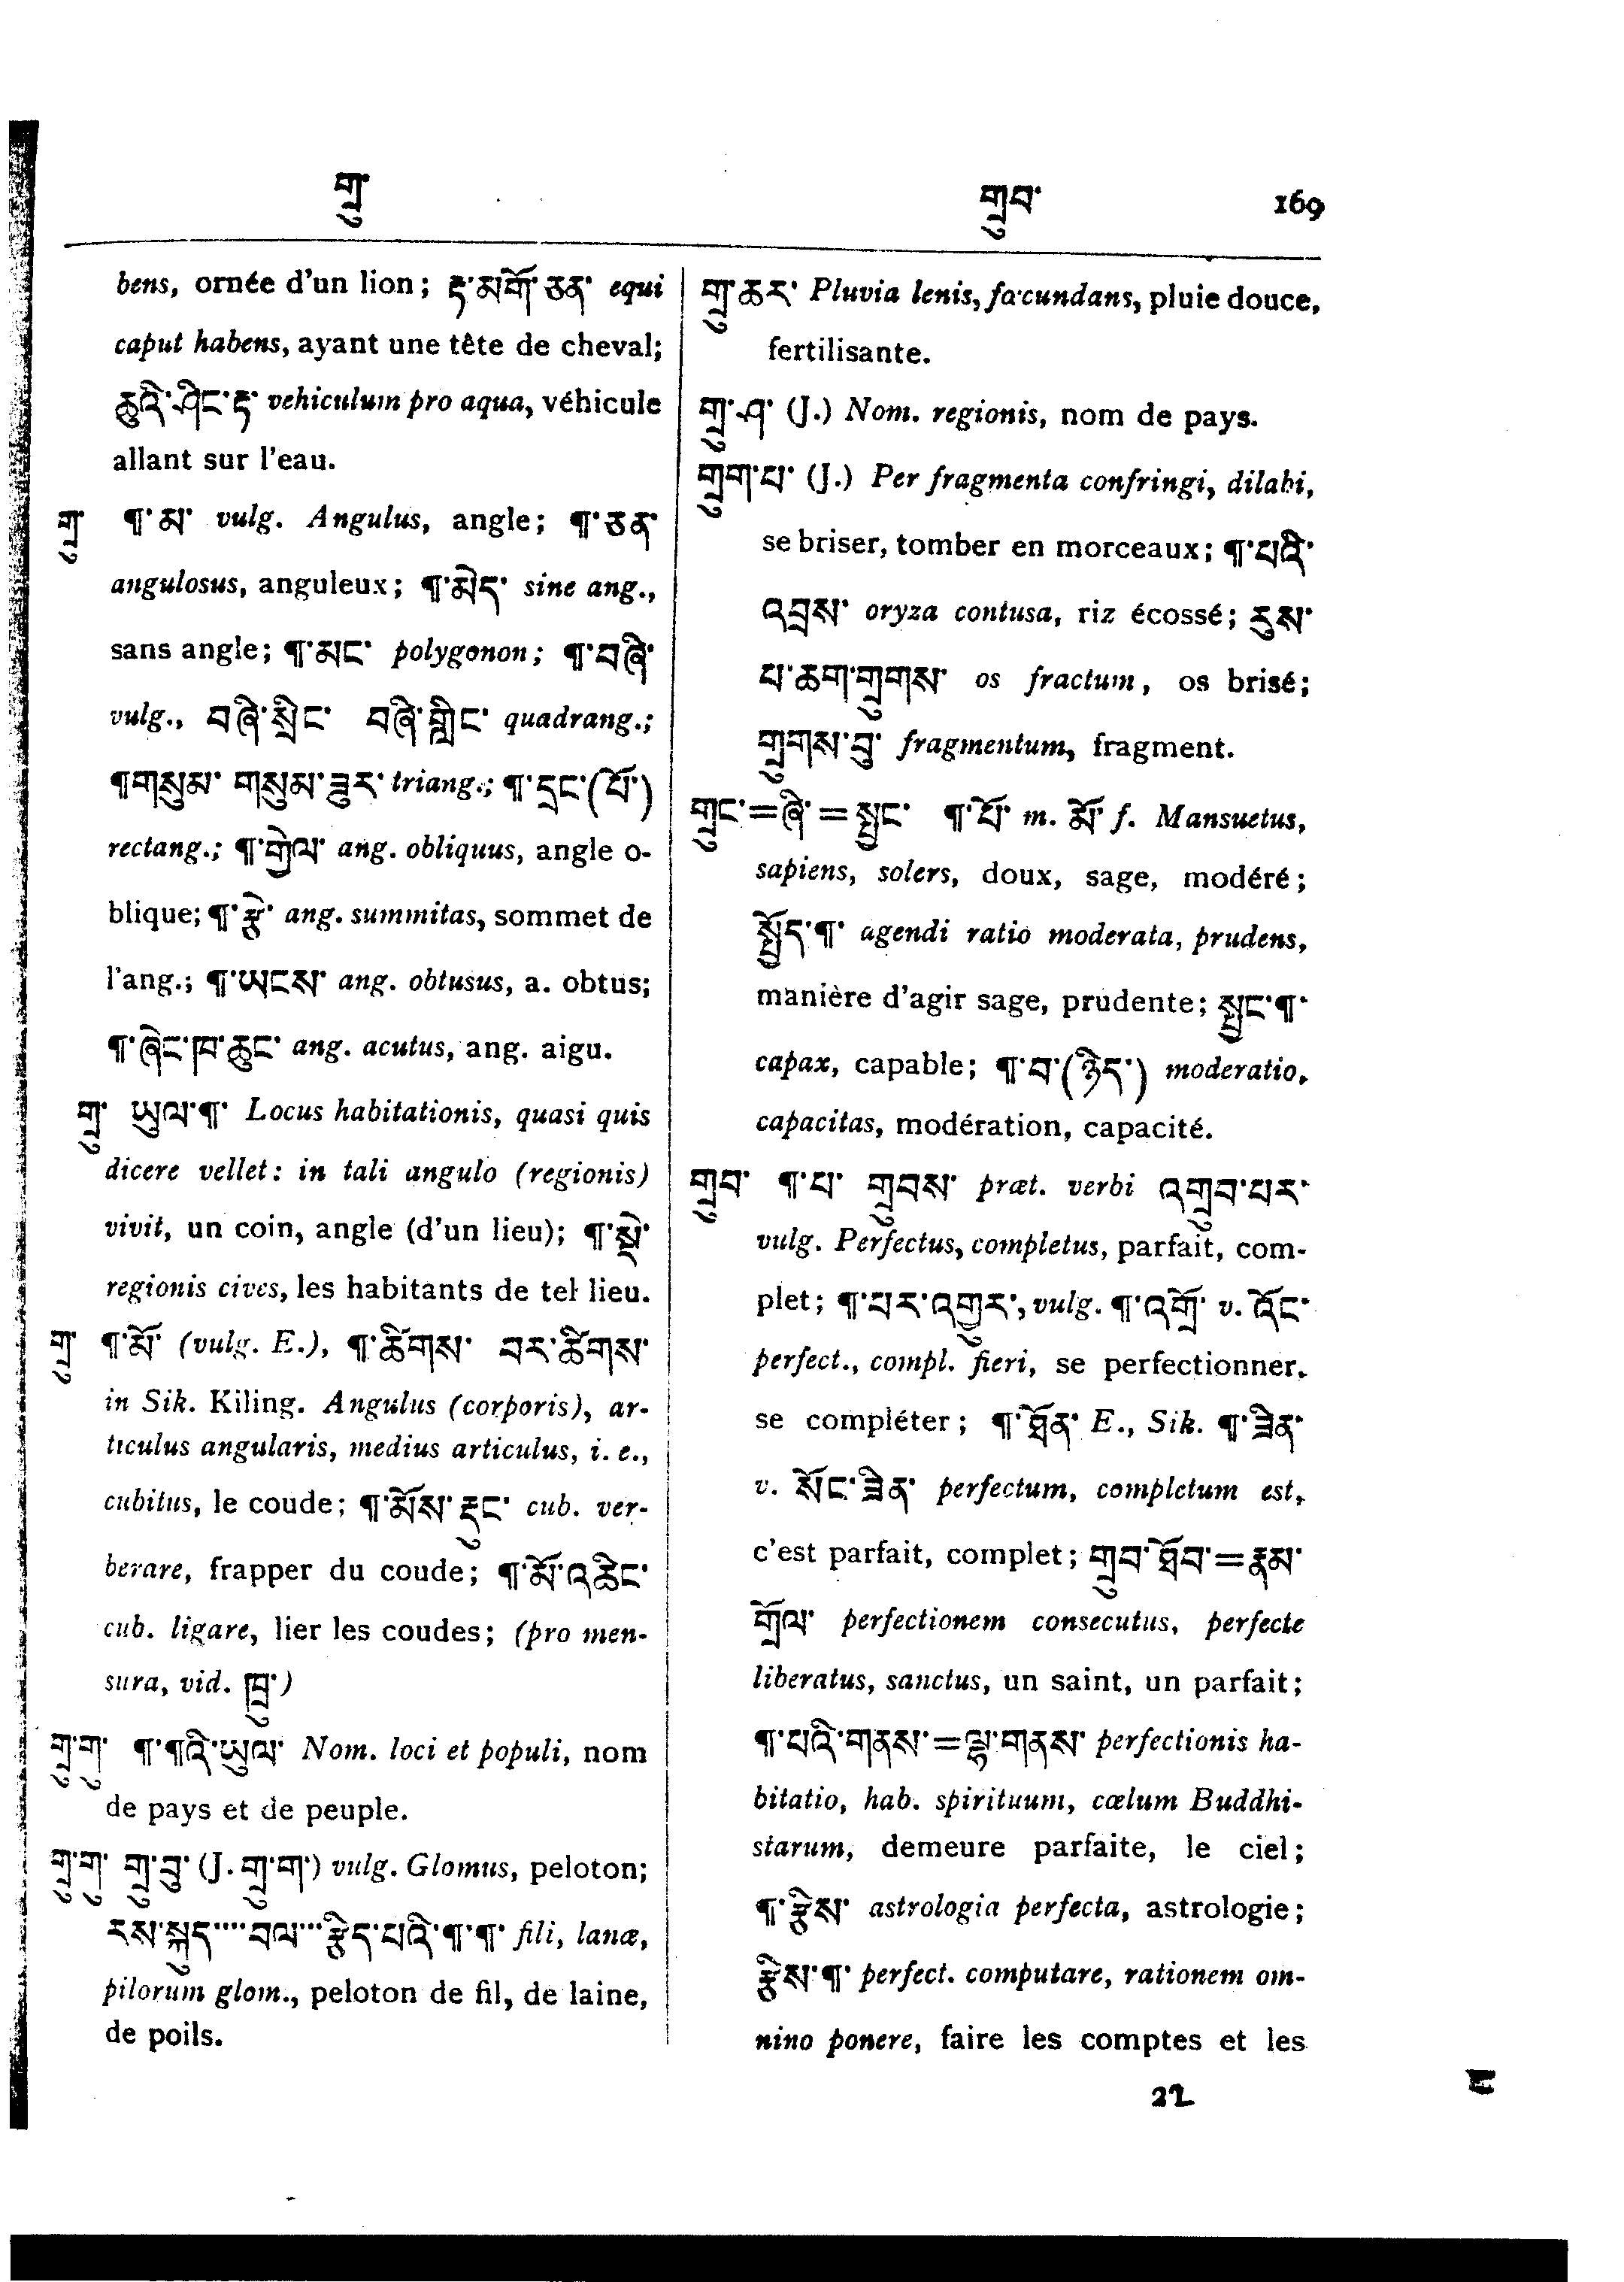 གྲུ་
གྲུབ་ 169
bens, ornée d'un lion; རྟ་མགོ་ཅན་ equi
caput habens, ayant une tête de cheval;
ཆུའི་ཤིང་རྟ་ vehiculum pro aqua, véhicule
allant sur l'eau.
གྲུ་ ¶་མ་ vulg. Angulus, angle; ¶་ཅན་
angulosus, anguleux; ¶་མེད་ sine ang.,
sans angle; ¶་མང་ polygonon; ¶་བཞི་
vulg., བཞི་སྲིང་ བཞི་གླིང་ quadrang.;
¶གསུམ་ གསུམ་ཟུར་ triang.; ¶་དྲང་(པོ་)
rectang.; ¶་གྱེལ་ ang. obliquus, angle o-
blique; ¶་རྩེ་ ang. summitas, sommet de
l'ang.; ¶་ཡངས་ ang. obtusus, a. obtus;
¶་ཞེང་ཁ་ཆུང་ ang. acutus, ang. aigu.
གྲུ་ ཡུལ་¶་ Locus habitationis, quasi quis
dicere vellet: in tali angulo (regionis)
vivit, un coin, angle (d'un lieu); ¶་སྡེ་
regionis cives, les habitants de tel lieu.
གྲུ་ ¶་མོ་ (vulg. E.), ¶་ཚིགས་ བར་ཚིགས་
in Sik. Kiling. Angulus (corporis), ar-
ticulus angularis, medius articulus, i. e.,
cubitus, le coude; ¶་མོས་རྡུང་ cub. ver-
berare, frapper du coude; ¶་མོ་འཆིང་
cub. ligare, lier les coudes; (pro men-
sura, vid. ཁྲུ་)
གྲུ་གུ་ ¶་¶འི་ཡུལ་ Nom. loci et populi, nom
de pays et de peuple.
གྲུ་གུ་ གྲུ་བུ་ (J. གྲུ་ག་) vulg. Glomus, peloton;
རས་སྐུད་····བལ་···རྩིད་པའི་¶་¶་ fili, lanæ,
pilorum glom., peloton de fil, de laine,
de poils.
གྲུ་ཆར་ Pluvia lenis, fœcundans, pluie douce,
fertilisante.
གྲུ་ཤ་ (J.) Nom. regionis, nom de pays.
གྲུག་པ་ (J.) Per fragmenta confringi, dilabi,
se briser, tomber en morceaux; ¶་པའི་
འབྲས་ oryza contusa, riz écossé; རུས་
པ་ཆག་གྲུགས་ os fractum, os brisé;
གྲུགས་བུ་ fragmentum, fragment.
གྲུང་=ཞི་=སྤྱང་ ¶་པོ་ m. མོ་ f. Mansuetus,
sapiens, solers, doux, sage, modéré;
སྤྱོད་¶་ agendi ratio moderata, prudens,
manière d'agir sage, prudente; སྤྱང་¶་
capax, capable; ¶་བ་(ཉིད་) moderatio,
capacitas, modération, capacité.
གྲུབ་ ¶་པ་ གྲུབས་ præt. verbi འགྲུབ་པར་
vulg. Perfectus, completus, parfait, com-
plet; ¶་པར་འགྱུར་, vulg. ¶་འགྲོ་ v. འོང་
perfect., compl. fieri, se perfectionner,
se compléter; ¶་ཐོན་ E., Sik. ¶་ཟིན་
v. སོང་ཟིན་ perfectum, completum est,
c'est parfait, complet; གྲུབ་ཐོབ་=རྣམ་
གྲོལ་ perfectionem consecutus, perfecte
liberatus, sanctus, un saint, un parfait;
¶་པའི་གནས་=ལྷ་གནས་ perfectionis ha-
bitatio, hab. spirituum, cœlum Buddhi-
starum, demeure parfaite, le ciel;
¶་རྩིས་ astrologia perfecta, astrologie;
རྩིས་¶་ perfect. computare, rationem om-
nino ponere, faire les comptes et les
22